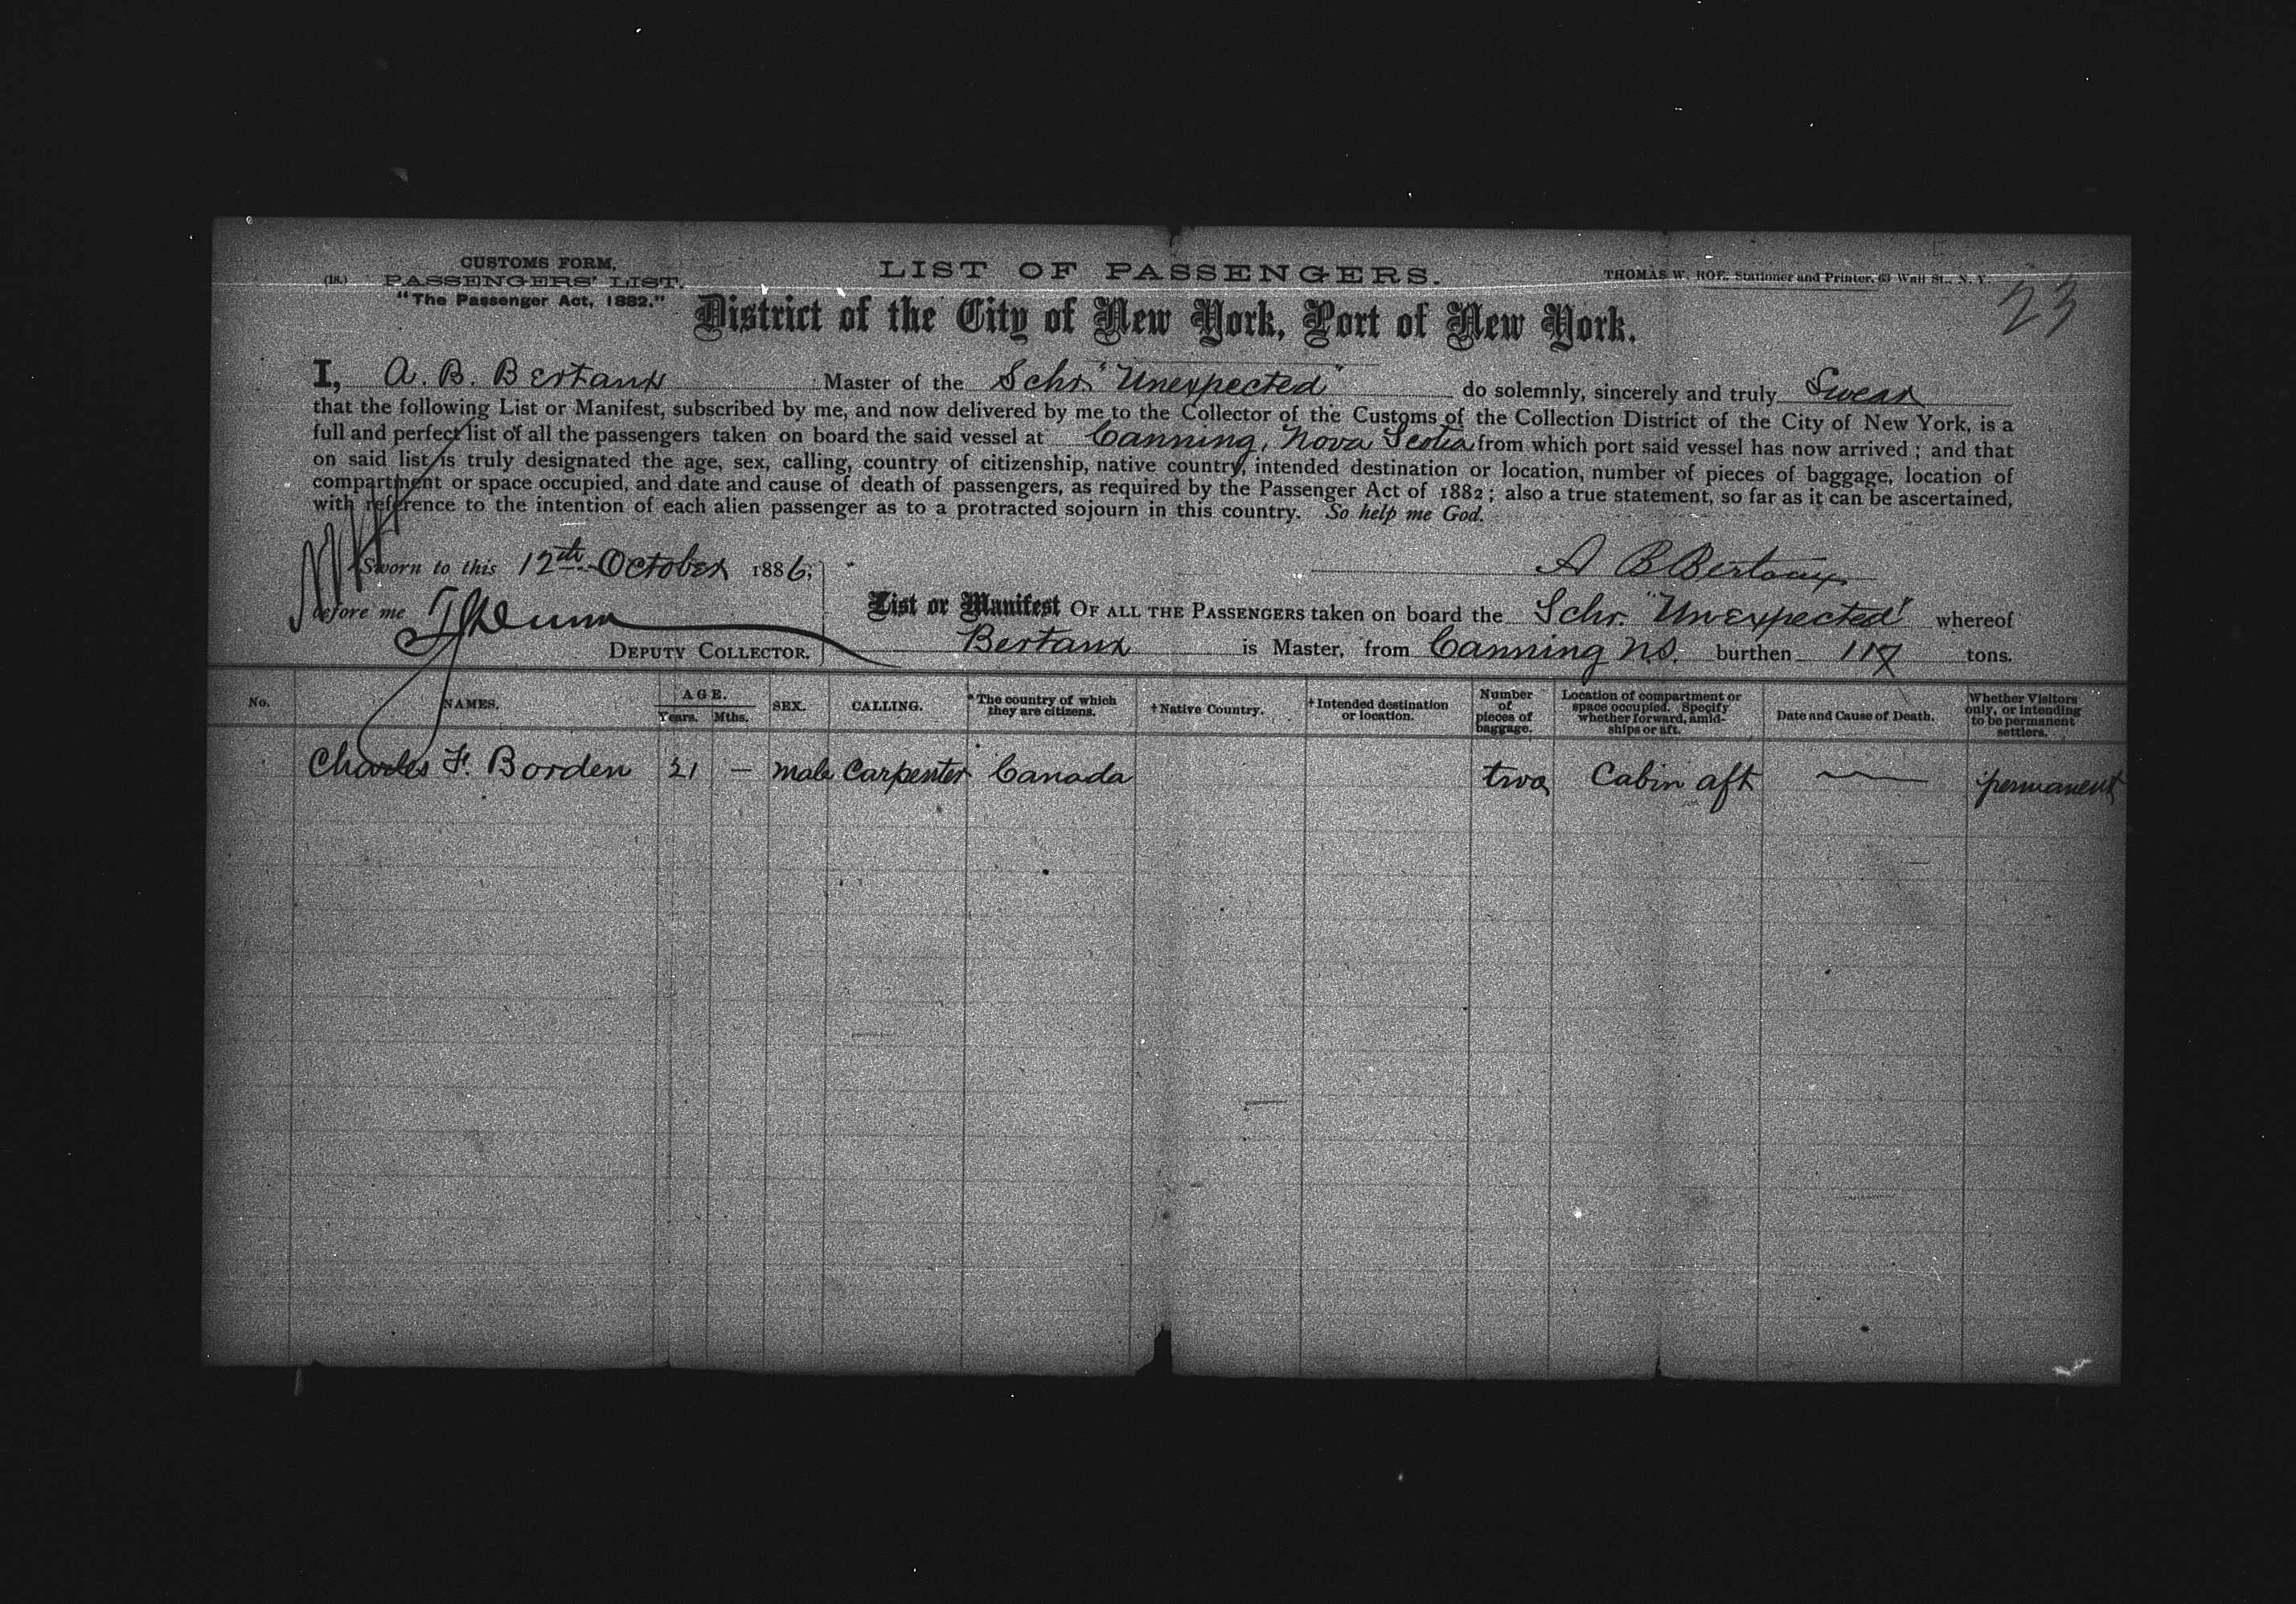 CUSTOMS FORM,
(18.) PASSENGERS' LIST.
"The Passenger Act, 1882."
LIST OF PASSENGERS.
THOMAS W. ROE, Stationer and Printer, 63 Wall St., N. Y.
23
District of the City of New York, Port of New York.
I, A. B. Bertaux Master of the Schr "Unexpected" do solemnly, sincerely and truly Swear
that the following List or Manifest, subscribed by me, and now delivered by me to the Collector of the Customs of the Collection District of the City of New York, is a
full and perfect list of all the passengers taken on board the said vessel at Canning, Nova Scotia from which port said vessel has now arrived; and that
on said list is truly designated the age, sex, calling, country of citizenship, native country, intended destination or location, number of pieces of baggage, location of
compartment or space occupied, and date and cause of death of passengers, as required by the Passenger Act of 1882; also a true statement, so far as it can be ascertained,
with reference to the intention of each alien passenger as to a protracted sojourn in this country. So help me God.
Sworn to this 12th October 1886,
A B Bertaux
before me Dunn
DEPUTY COLLECTOR.
List or Manifest OF ALL THE PASSENGERS taken on board the Schr. "Unexpected" whereof
Bertaux is Master, from Canning N.S. burthen 117 tons.
No. NAMES. AGE. Years. Mths. SEX. CALLING. *The country of which they are citizens. †Native Country. †Intended destination or location. Number of pieces of baggage. Location of compartment or space occupied. Specify whether forward, amidships or aft. Date and Cause of Death. Whether Visitors only, or intending to be permanent settlers.
Charles F. Borden 21 — male Carpenter Canada two Cabin aft — permanent